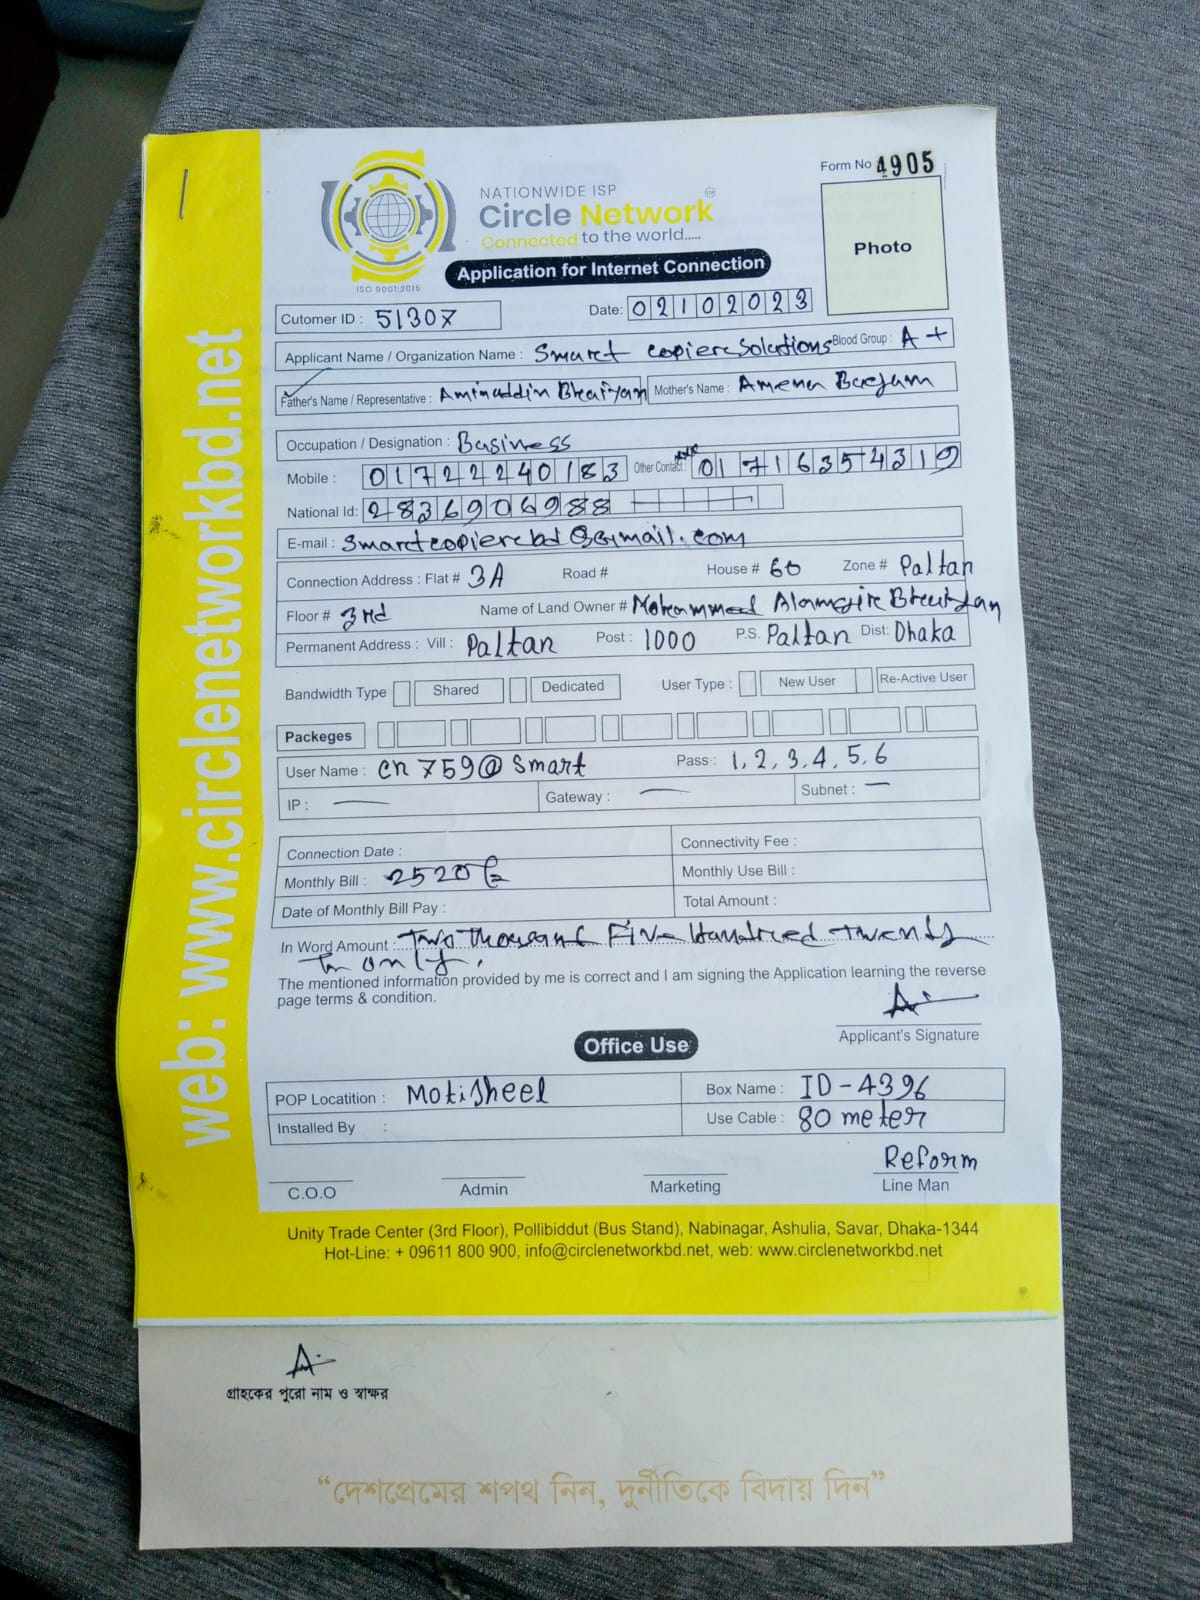 Form No 4905
NATIONWIDE ISP
Circle Network
Connected to the world.....
ISO 9001:2015
Photo
Application for Internet Connection
Cutomer ID : 51307
Date: 02102023
Applicant Name / Organization Name : Smart copier Solutions Blood Group : A+
Father's Name / Representative : Aminuddin Bhuiyan Mother's Name : Amena Begum
Occupation / Designation : Business
Mobile : 01722240183 Other Contact : 01716354319
National Id: 2836906988
E-mail : smartcopierbd@gmail.com
Connection Address : Flat # 3A Road # House # 60 Zone # Paltan
Floor # 3rd Name of Land Owner # Mohammed Alamgir Bhuiyan
Permanent Address : Vill : Paltan Post : 1000 P.S. Paltan Dist: Dhaka
Bandwidth Type Shared Dedicated User Type : New User Re-Active User
Packeges
User Name : cn759@smart Pass : 1,2,3,4,5,6
IP : — Gateway : — Subnet : —
Connection Date : Connectivity Fee :
Monthly Bill : 2520 Monthly Use Bill :
Date of Monthly Bill Pay : Total Amount :
In Word Amount : Two thousand Five Hundred twenty
Tk only.
The mentioned information provided by me is correct and I am signing the Application learning the reverse
page terms & condition.
Applicant's Signature
Office Use
POP Locatition : Motijheel Box Name : ID-4396
Installed By : Use Cable : 80 meter
Reform
C.O.O Admin Marketing Line Man
Unity Trade Center (3rd Floor), Pollibiddut (Bus Stand), Nabinagar, Ashulia, Savar, Dhaka-1344
Hot-Line: + 09611 800 900, info@circlenetworkbd.net, web: www.circlenetworkbd.net
web: www.circlenetworkbd.net
গ্রাহকের পুরো নাম ও স্বাক্ষর
“দেশপ্রেমের শপথ নিন, দুর্নীতিকে বিদায় দিন”